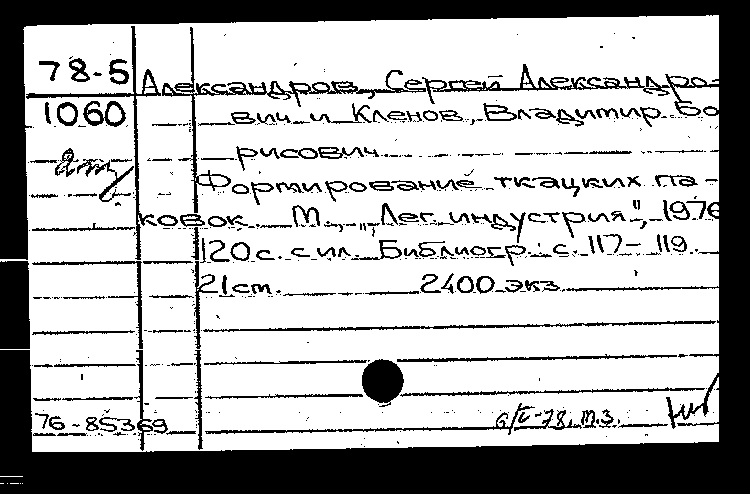 78-5 Александров, Сергей Александро-
1060 вич и Кленов, Владимир Бо
рисович
Формирование ткацких па-
ковок М., "Лег индустрия", 1976
120 с. с ил. Библиогр.: с. 117-119.
21 см. 2400 экз
76-85369